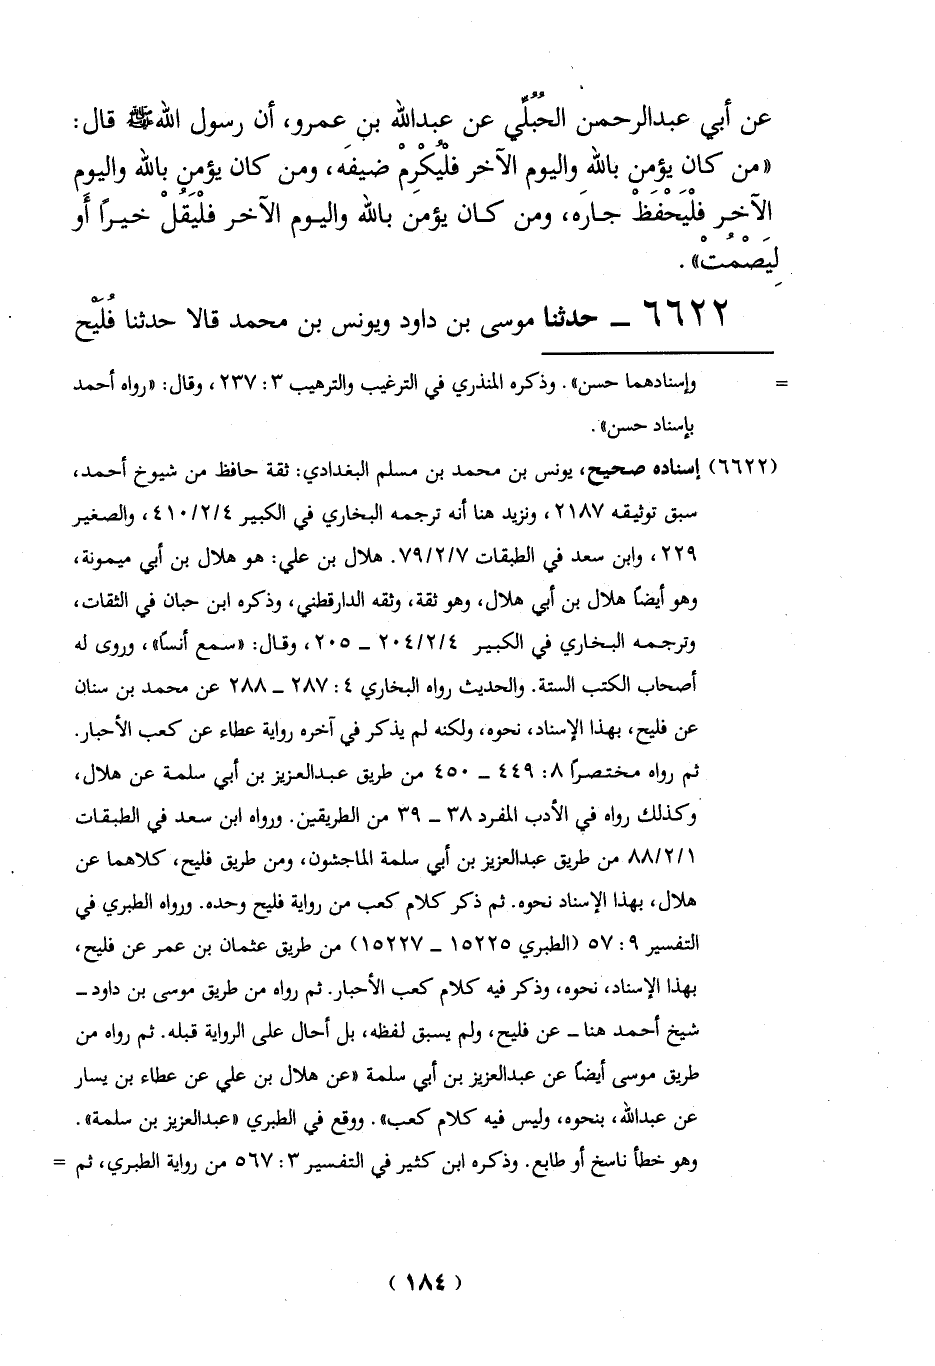 عن أبي عبدالرحمن الحُبُلِّي عن عبدالله بن عمرو، أن رسول الله ﷺ قال:
«من كان يؤمن بالله واليوم الآخر فلْيُكْرِمْ ضيفَه، ومن كان يؤمن بالله واليوم
الآخر فلْيَحْفَظْ جارَه، ومن كان يؤمن بالله واليوم الآخر فليَقُلْ خيراً أو
لِيَصْمُتْ».
٦٦٢٢ ـ حدثنا موسى بن داود ويونس بن محمد قالا حدثنا فُلَيْح
= وإسنادهما حسن». وذكره المنذري في الترغيب والترهيب ٣: ٢٣٧، وقال: «رواه أحمد
بإسناد حسن».
(٦٦٢٢) إسناده صحيح، يونس بن محمد بن مسلم البغدادي: ثقة حافظ من شيوخ أحمد،
سبق توثيقه ٢١٨٧، ونزيد هنا أنه ترجمه البخاري في الكبير ٤١٠/٢/٤، والصغير
٢٢٩، وابن سعد في الطبقات ٧٩/٢/٧. هلال بن علي: هو هلال بن أبي ميمونة،
وهو أيضاً هلال بن أبي هلال، وهو ثقة، وثقه الدارقطني، وذكره ابن حبان في الثقات،
وترجمه البخاري في الكبير ٢٠٤/٢/٤ ـ ٢٠٥، وقال: «سمع أنساً»، وروى له
أصحاب الكتب الستة. والحديث رواه البخاري ٤: ٢٨٧ ـ ٢٨٨ عن محمد بن سنان
عن فليح، بهذا الإسناد، نحوه، ولكنه لم يذكر في آخره رواية عطاء عن كعب الأحبار.
ثم رواه مختصراً ٨: ٤٤٩ ـ ٤٥٠ من طريق عبدالعزيز بن أبي سلمة عن هلال،
وكذلك رواه في الأدب المفرد ٣٨ ـ ٣٩ من الطريقين. ورواه ابن سعد في الطبقات
٨٨/٢/١ من طريق عبدالعزيز بن أبي سلمة الماجشون، ومن طريق فليح، كلاهما عن
هلال، بهذا الإسناد نحوه. ثم ذكر كلام كعب من رواية فليح وحده. ورواه الطبري في
التفسير ٩: ٥٧ (الطبري ١٥٢٢٥ ـ ١٥٢٢٧) من طريق عثمان بن عمر عن فليح،
بهذا الإسناد، نحوه، وذكر فيه كلام كعب الأحبار. ثم رواه من طريق موسى بن داود ـ
شيخ أحمد هنا ـ عن فليح، ولم يسبق لفظه، بل أحال على الرواية قبله. ثم رواه من
طريق موسى أيضاً عن عبدالعزيز بن أبي سلمة «عن هلال بن علي عن عطاء بن يسار
عن عبدالله، بنحوه، وليس فيه كلام كعب». ووقع في الطبري «عبدالعزيز بن سلمة».
وهو خطأ ناسخ أو طابع. وذكره ابن كثير في التفسير ٣: ٥٦٧ من رواية الطبري، ثم =
(١٨٤)